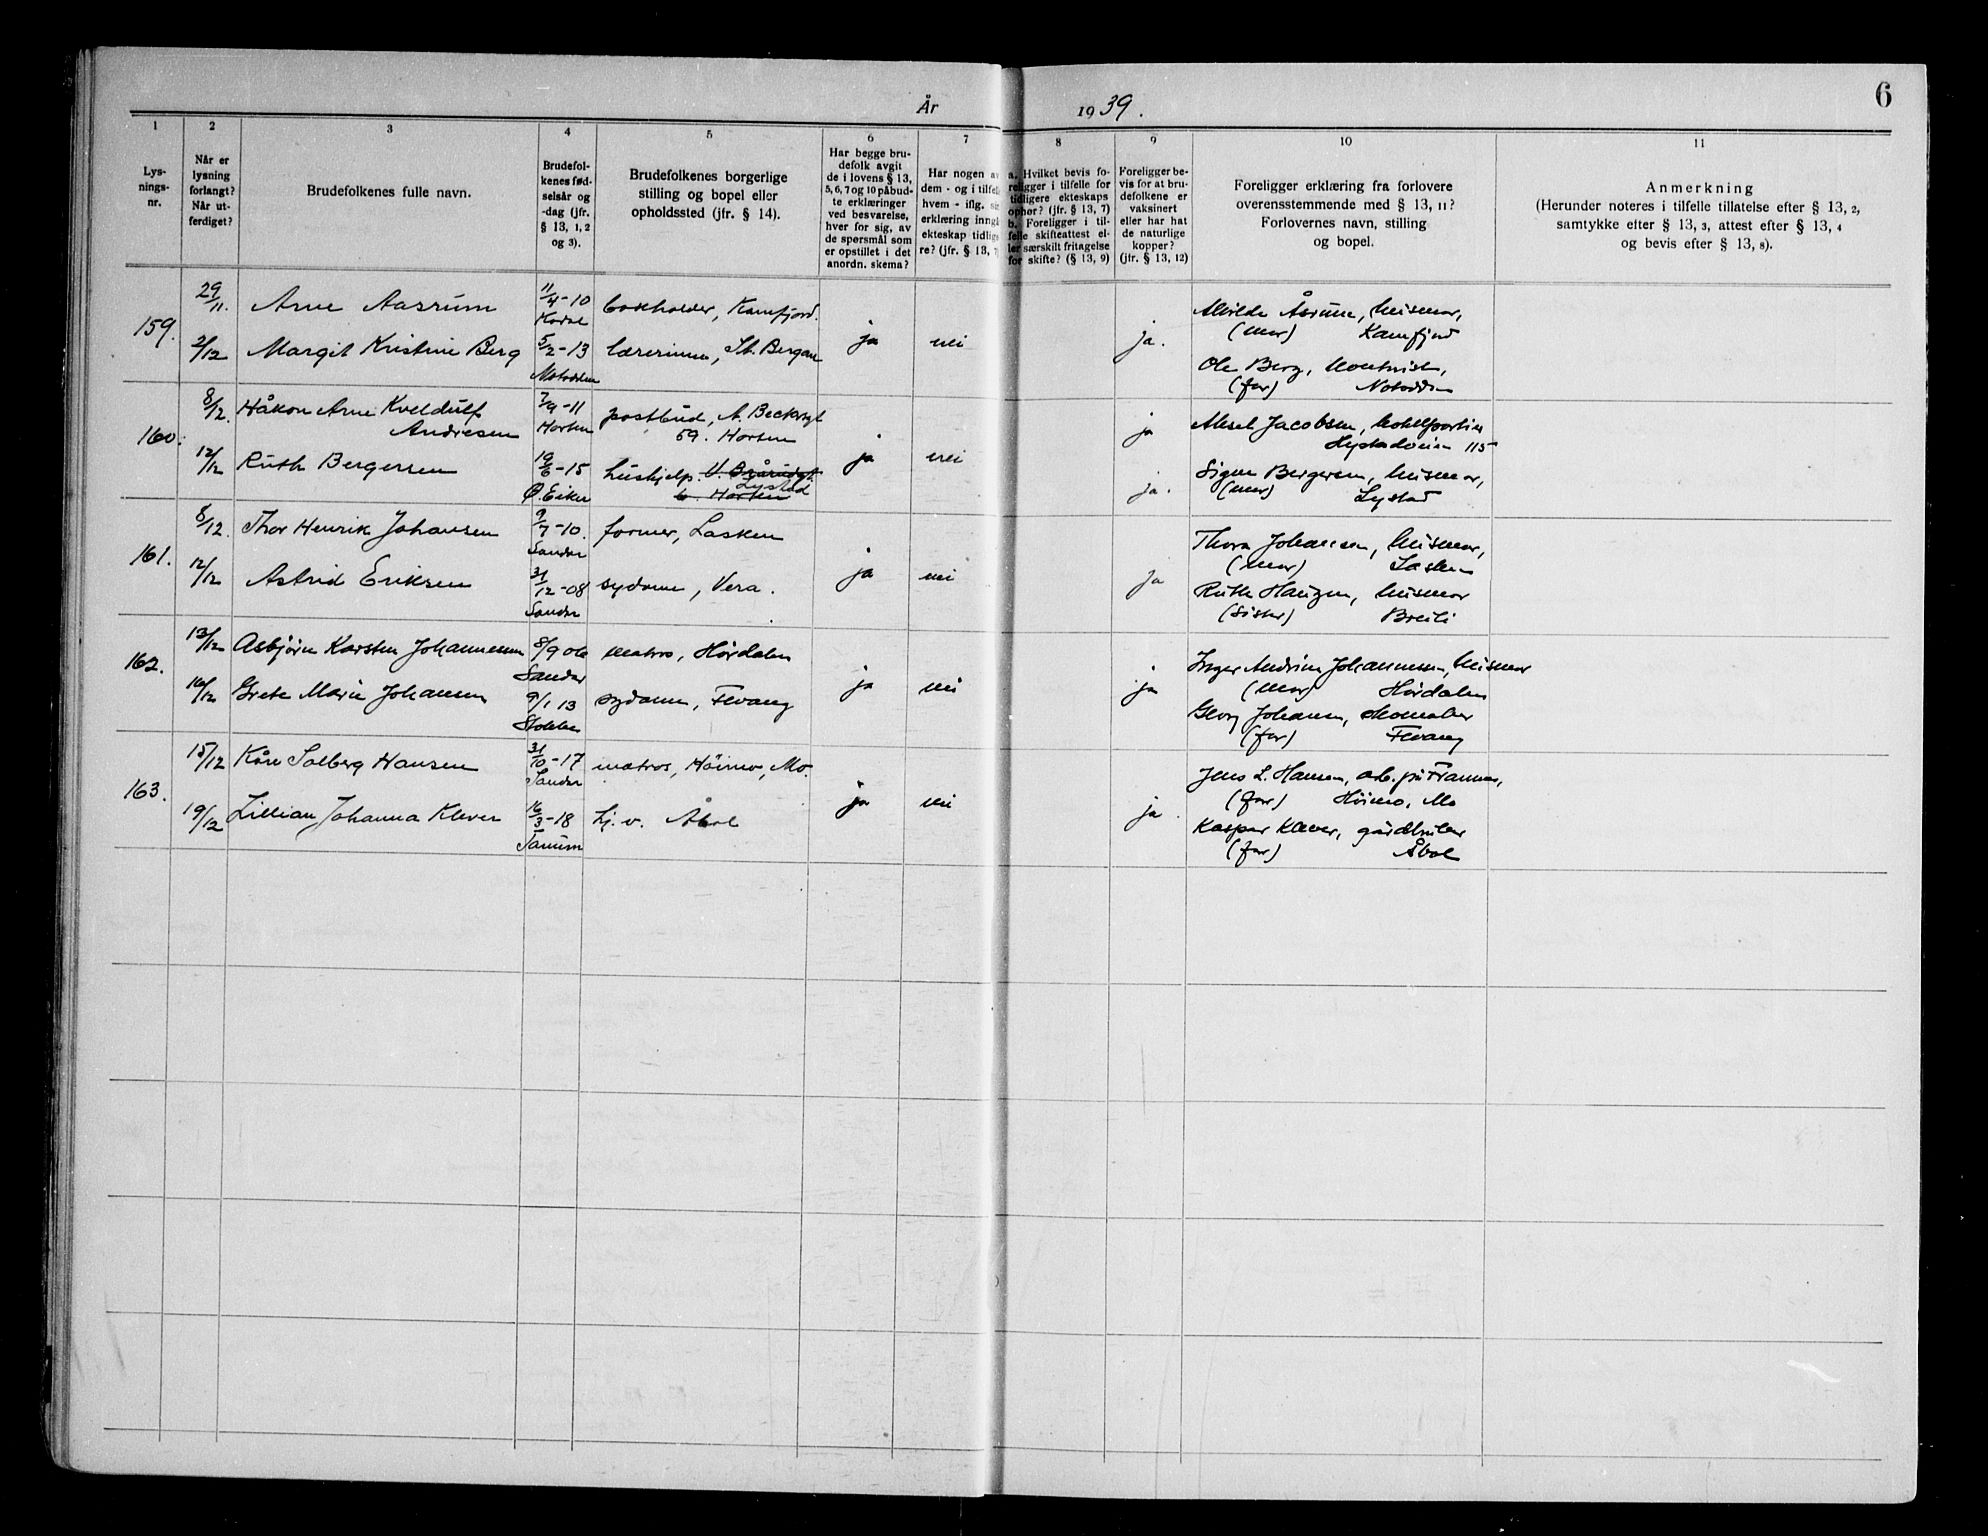 År 1939.
6
1 2 3 4 5 6 7 8 9 10 11
Lys-
nings-
nr.
Når er
lysning
forlangt?
Når ut-
ferdiget?
Brudefolkenes fulle navn.
Brudefol-
kenes fød-
selsår og
-dag (jfr.
§ 13, 1, 2
og 3).
Brudefolkenes borgerlige
stilling og bopel eller
opholdssted (jfr. § 14).
Har begge bru-
defolk avgit
de i lovens § 13,
5, 6, 7 og 10 påbud-
te erklæringer
ved besvarelse,
hver for sig, av
de spørsmål som
er opstillet i det
anordn. skema?
Har nogen av
dem - og i tilfelle
hvem - iflg. si
erklæring inngå
ekteskap tidlige
re? (jfr. § 13, 7
a. Hvilket bevis fo-
religger i tilfelle for
tidligere ekteskaps
ophør? (jfr. § 13, 7)
b. Foreligger i til-
felle skifteattest el-
ler særskilt fritagelse
for skifte? (§ 13, 9)
Foreligger be-
vis for at bru-
defolkene er
vaksinert
eller har hat
de naturlige
kopper?
(jfr. § 13, 12)
Foreligger erklæring fra forlovere
overensstemmende med § 13, 11?
Forlovernes navn, stilling
og bopel.
Anmerkning
(Herunder noteres i tilfelle tillatelse efter § 13, 2,
samtykke efter § 13, 3, attest efter § 13, 4
og bevis efter § 13, 8).
159.
29/11. Arne Aasrum 11/4-10 bokholder, Kamfjord.
Kodal
2/12 Margit Kristine Berg 5/2-13 lærerinne, St. Bergan ja nei ja.
Notodden
Alvilde Åsrum, husmor,
(mor) Kamfjord
Ole Berg,
(far) Notodden
160.
8/12. Håkon Arne Kveldulf 7/9-11 postbud, A. Beckvgt
Andresen Horten 59. Horten
12/12 Ruth Bergersen 19/6-15 hushjelp. Lystad ja nei
Ø. Eiker Horten
ja Aksel Jacobsen, hotellportier
Hystadveien 115
ja. Signe Bergersen, husmor,
(mor) Lystad
161.
8/12. Thor Henrik Johansen 9/7-10. former, Lasken
Sandar
12/12 Astrid Eriksen 31/12-08 sydame, Vera. ja nei ja
Sandar
Thora Johansen, husmor,
(mor) Lasken
Ruth Haugen, husmor
(søster) Breili
162.
13/12 Asbjørn Karsten Johannessen 8/9 06 matros, Hørdalen
Sandar
16/12 Grete Marie Johansen 9/1 13 sydame, Fevang ja nei ja
Stokke
Inger Andrine Johannessen, husmor
(mor) Hørdalen
Georg Johansen, skomaker
(far) Fevang
163.
15/12 Kåre Solberg Hansen 31/10-17 matros, Høimo, Mo.
Sandar
19/12 Lillian Johanna Klever 16/3-18 hj. v. Åbol ja nei ja.
Tanum
Jens L. Hansen, arb. på Framnes,
(far) Høimo, Mo
Kaspar Klever, gårdbruker
(far) Åbol